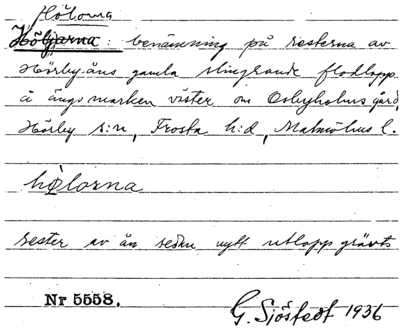 Hölorna
Höljarna: benämning på resterna av
Hörby-åns gamla slingrande flodlopp
å ängsmarken väster om Osbyholms gård,
Hörby s:n, Frosta h:d, Malmöhus l.
hølorna
rester av ån sedan nytt utlopp grävts
Nr 5558.
G. Sjöstedt 1936